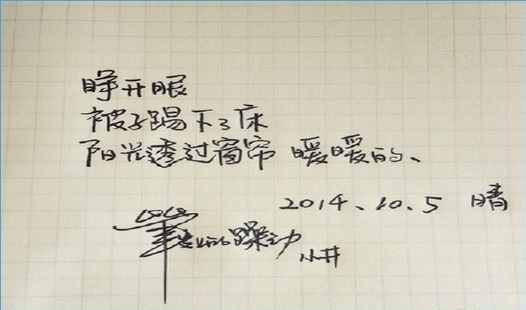 睁开眼
被子踢下了床
阳光透过窗帘 暖暖的、
2014.10.5 晴
笔尖的躁动
小井